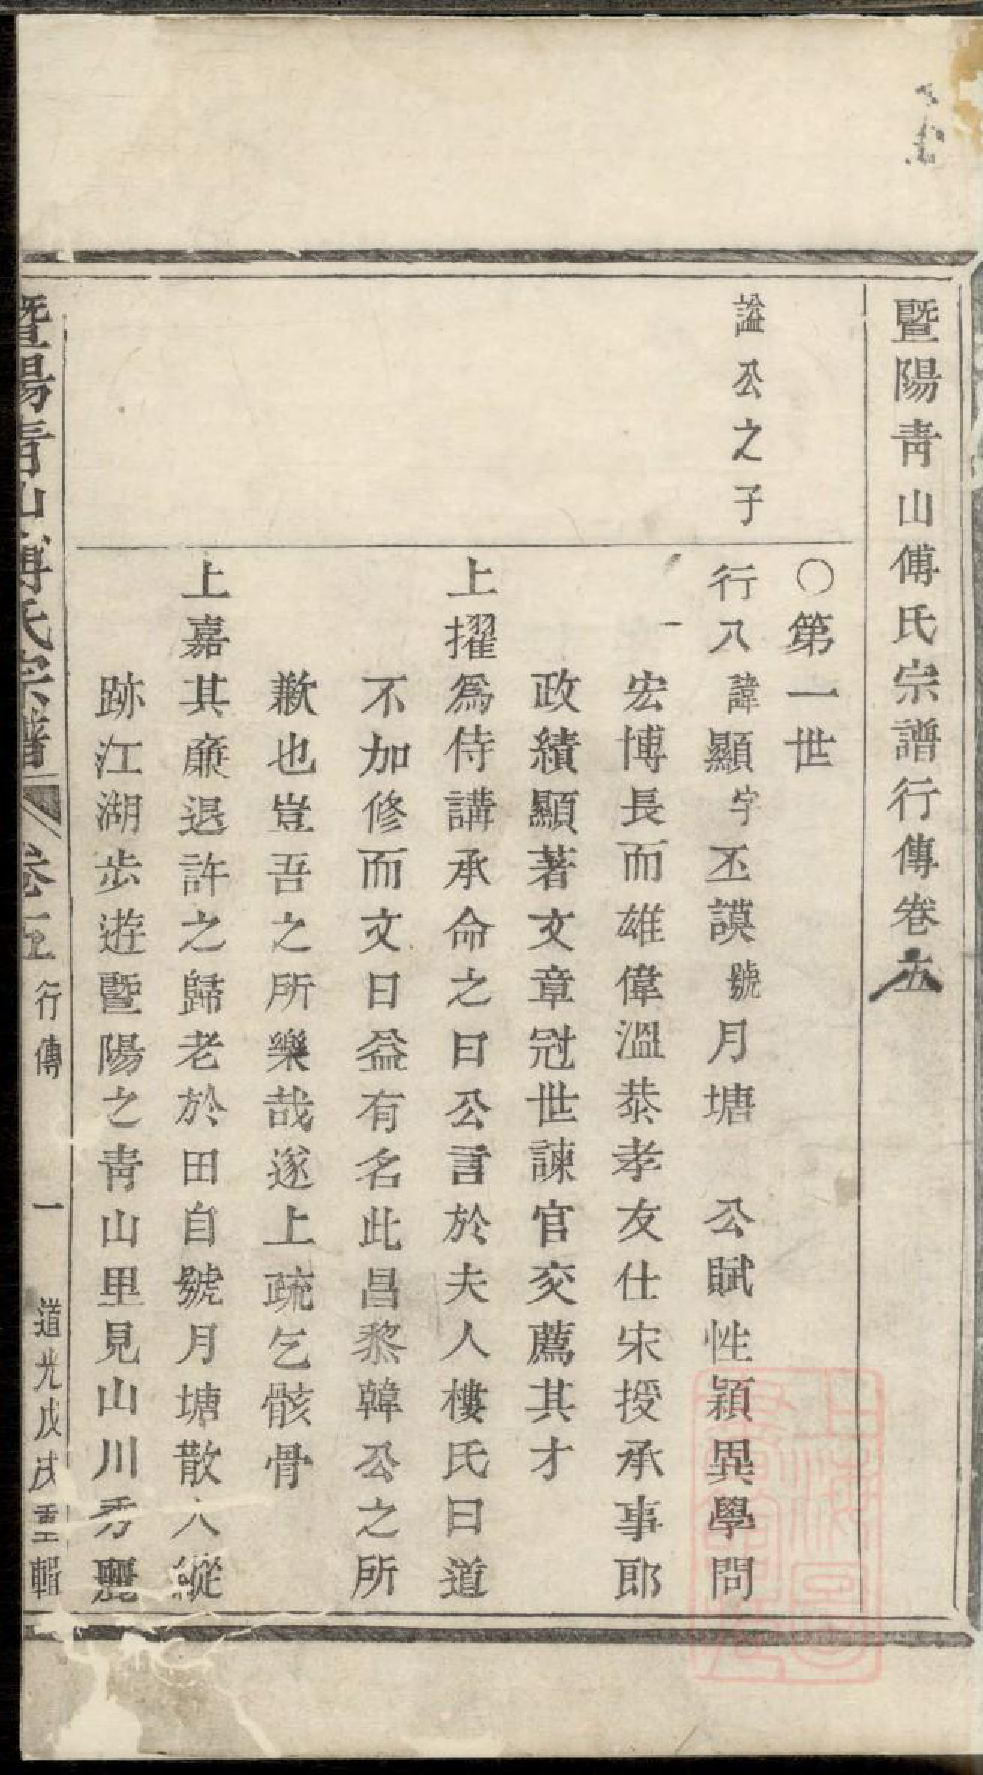 暨陽靑山傅氏宗譜行傳卷五
○第一世
謚公之子
行八諱顯字丕謨號月塘　公賦性穎異學問
宏博長而雄偉溫恭孝友仕宋授承事郎
政績顯著文章冠世諫官交薦其才
上擢爲侍講承命之日公言於夫人樓氏曰道
不加修而文日益有名此昌黎韓公之所
歉也豈吾之所樂哉遂上疏乞骸骨
上嘉其廉退許之歸老於田自號月塘散人縱
跡江湖步遊暨陽之靑山里見山川秀麗
暨陽靑山傅氏宗譜　卷五　行傳　一　道光戊戌重輯
上海圖書館藏